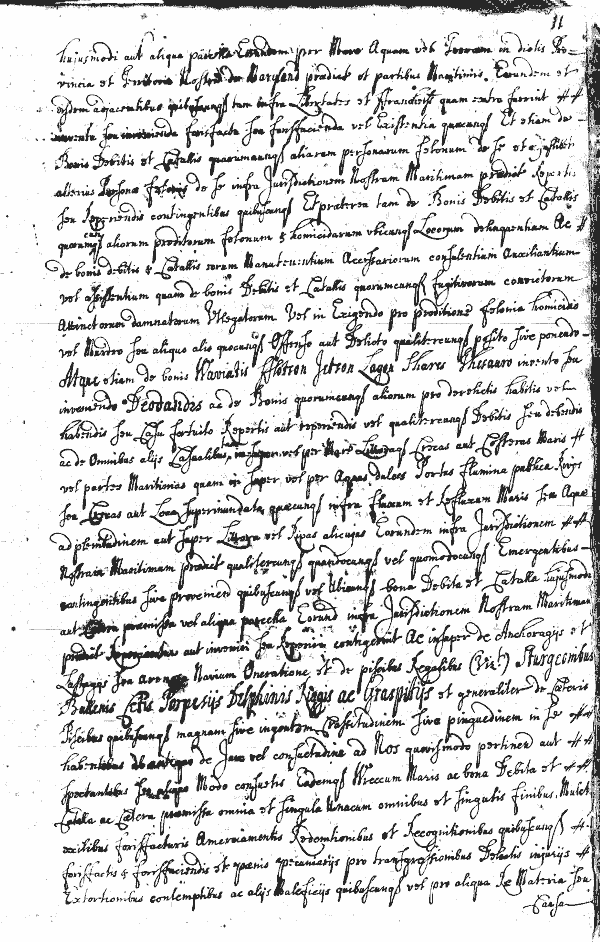 11
hujusmodi aut aliqua parcella Eorundem per Mare Aquam vel Terram in dictis Pro-
vincia et Territorio Nostro de Maryland prædict et partibus Maritimis Eorundem et
eisdem adjacentibus quibuscunqꝫ tam infra Libertates et Franchess quam extra fuerint
inventa seu invenienda forisfacta seu forisfacienda vel Existentia quæcunqꝫ Et etiam de
Bonis Debitis et Catallis quorumcunqꝫ aliarum personarum felonum de se et cujuslibet
alterius Personæ felonis de se infra Jurisdictionem Nostram Maritimam prædict Repertis
seu Reperiendis contingentibus quibuscunqꝫ Et præterea tam de Bonis Debitis et Catallis
quorumcunqꝫ aliorum proditorum felonum & homicidarum ubicunqꝫ Locorum delinquentium Ac
de bonis debitis & Catallis eorum Manutenentium Accessariorum consulentium Auxiliantium
vel assistentium quam de bonis Debitis et Catallis quorumcunqꝫ fugitivorum convictorum
Attinctorum damnatorum Utlegatorum Vel in Exigendo pro proditione felonia homicidio
vel Murdro seu aliquo alio quocunqꝫ Offenso aut Delicto qualitercunqꝫ posito sive ponendo
Atque etiam de bonis Waviatis Flotson Jetson Lagon Shares Thesauro invento seu
inveniendo Deodandis ac de Bonis quorumcunqꝫ aliorum pro derelictis habitis vel
habendis seu Casu fortuito Repertis aut reperiendis vel qualitercunqꝫ Debitis seu debendis
ac de Omnibus alijs Casualitibus tam in super vel per Mare Littoraqꝫ Crecas aut Costeras Maris
vel partes Maritimas quam in super vel per Aquas dulces Portus flumina publica Rivos
seu Crecas aut Loca superinundata quæcunqꝫ infra fluxum et Refluxum Maris seu Aquæ
ad plenitudinem aut super Littora vel Ripas alicujus Eorundem infra Jurisdictionem
Nostram Maritimam prædict qualitercunqꝫ quandocunqꝫ vel quomodocunqꝫ Emergentibus
contingentibus sive provenien quibuscunqꝫ vel Ubicunqꝫ bona Debita et Catalla hujusmodi
aut Cætera præmissa vel aliqua parcella Eorund infra Jurisdictionem Nostram Maritimam
prædict aut inveniri seu Reperiri contigerint Ac insuper de Anchoragijs et
Lastagijs seu Arenæ Navium Oneratione et de piscibus Regalibus (Vizt) Sturgeonibus
Ballenis Cetis Porpetijs Delphinis Riggis ac Graspitijs et generaliter de Cæteris
Piscibus quibuscunqꝫ magnam sive ingentem Crassitudinem sive pinguedinem in se
habentibus ab antiquo de Jure vel consuetudine ad Nos quovismodo pertinen aut
spectantibus seu aliquo Modo consuetis Eademqꝫ Wreccum Maris ac bona Debita et
Catalla ac Cætera præmissa omnia et singula Unacum omnibus et singulis finibus Mulct
exitibus forisfacturis Amerciamentis Redemtionibus et Recognitionibus quibuscunqꝫ
forisfactis & forisfaciendis et pænis pecuniarijs pro transgressionibus Delictis injurijs
Extortionibus contemptibus ac alijs Maleficijs quibuscunqꝫ vel pro aliqua Re Materia seu
Causa